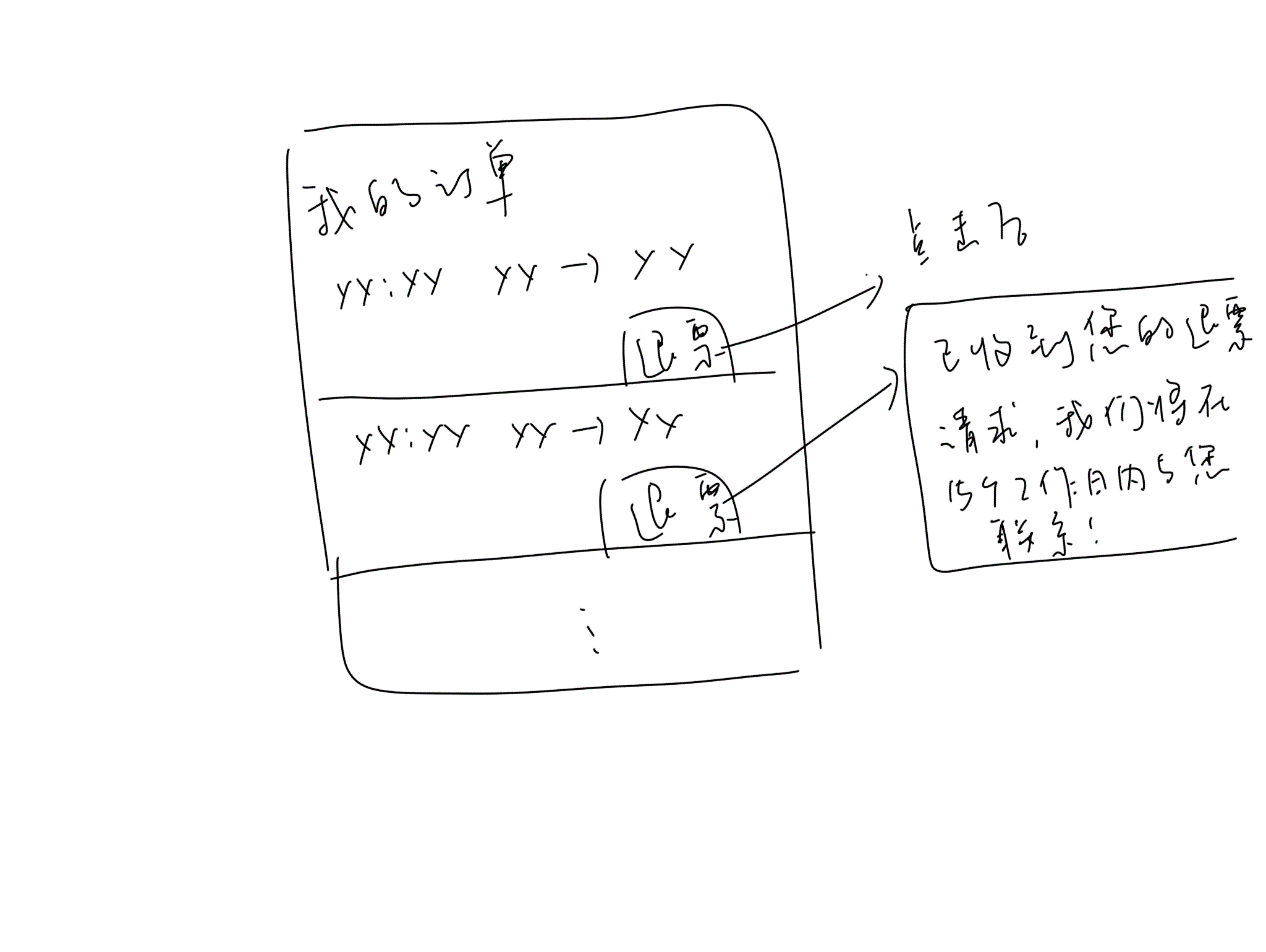 我的订单
YY:YY YY → YY
退票
YY:YY YY → YY
退票
⋮
点击后
已收到您的退票
请求,我们将在
15个工作日内与您
联系!